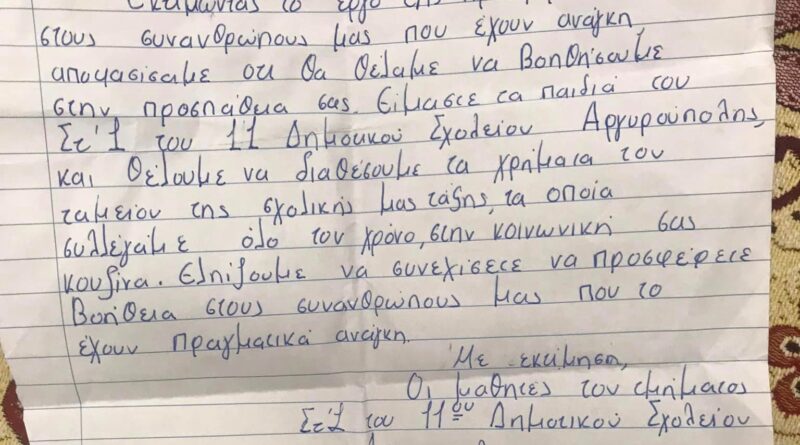 Εκτιμώντας το έργο της
στους συνανθρώπους μας που έχουν ανάγκη,
αποφασίσαμε οτι θα θέλαμε να βοηθήσουμε
στην προσπάθεια σας. Είμαστε τα παιδιά του
Στ'1 του 11 Δημοτικού Σχολείου Αργυρούπολης,
και θέλουμε να διαθέσουμε τα χρήματα του
ταμείου της σχολικής μας τάξης, τα οποία
συλλέγαμε όλο τον χρόνο, στην κοινωνική σας
κουζίνα. Ελπίζουμε να συνεχίσετε να προσφέρετε
βοήθεια στους συνανθρώπους μας που το
έχουν πραγματικά ανάγκη.
Με εκτίμηση,
Οι μαθητές του τμήματος
Στ'1 του 11ου Δημοτικού Σχολείου